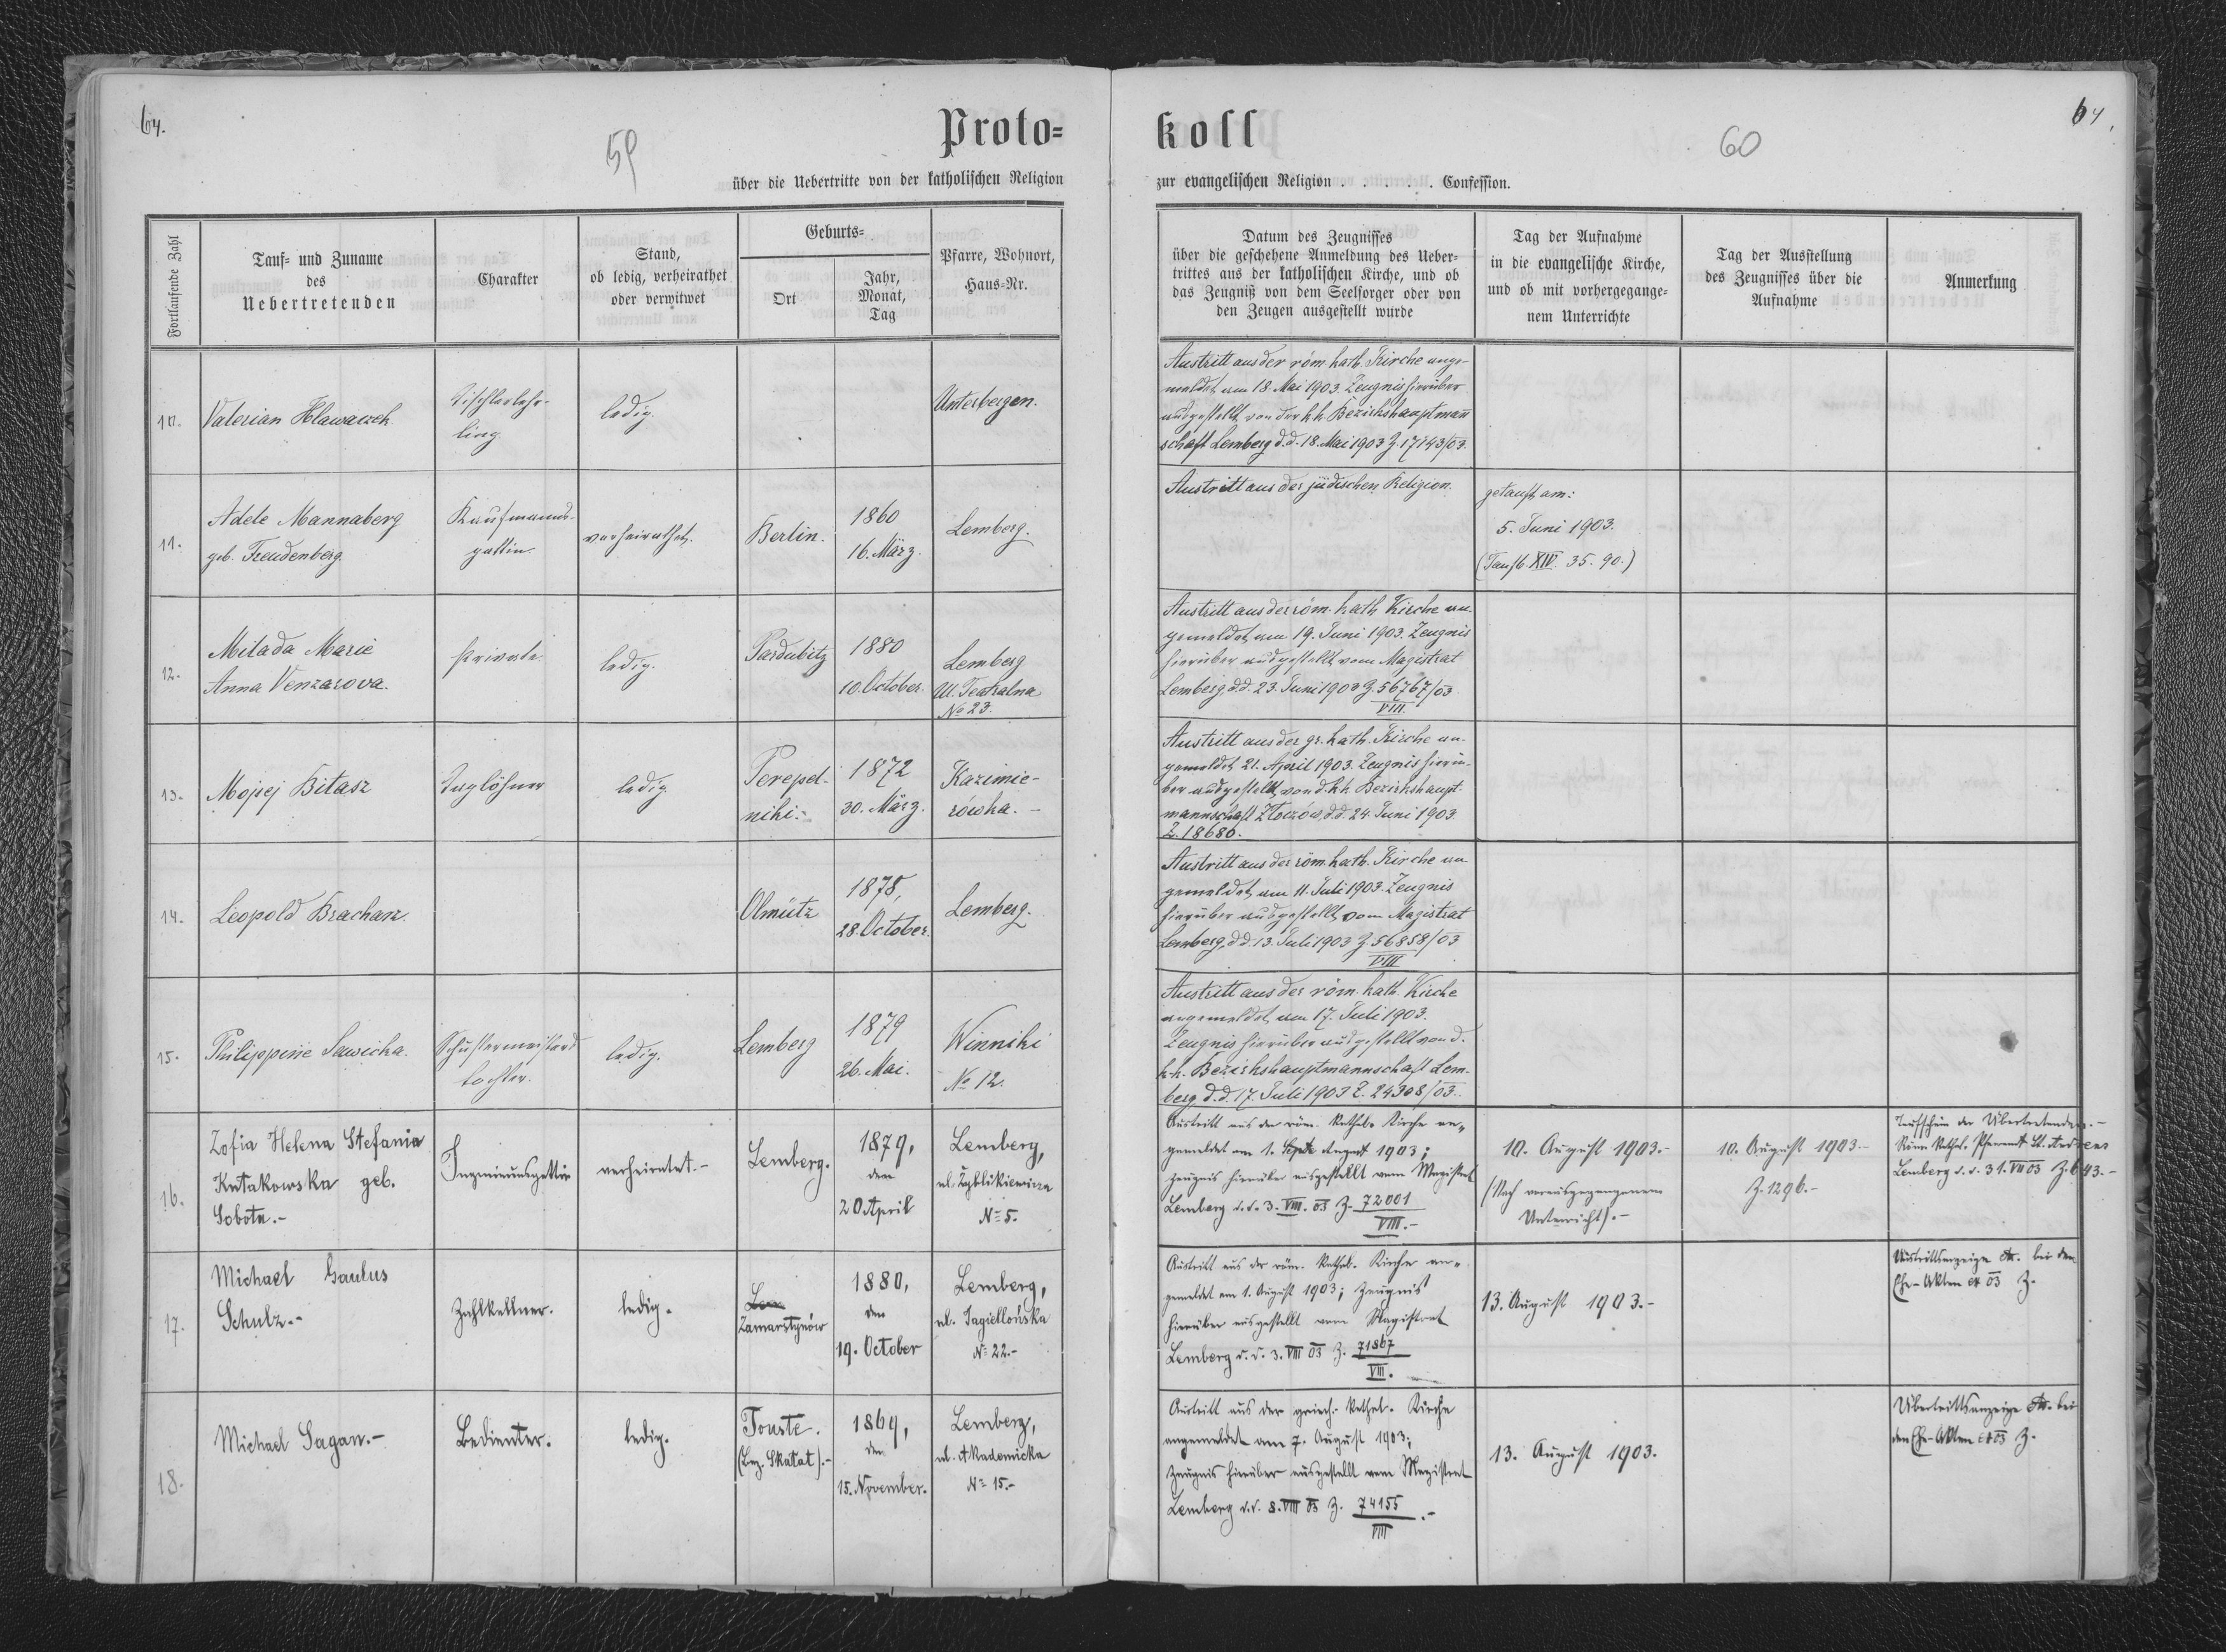 64.
59
Proto=
über die Uebertritte von der katholischen Religion
Fortlaufende Zahl
Tauf= und Zuname
des
Uebertretenden
Charakter
Stand,
ob ledig, verheirathet
oder verwitwet
Geburts=
Ort
Jahr,
Monat,
Tag
Pfarre, Wohnort,
Haus=Nr.
10.
Valerian Hlawaczek
Tischlerlehr-
ling
ledig.
Unterbergen.
11.
Adele Mannaberg
geb. Freudenberg.
Kaufmanns-
gattin.
verheirathet.
Berlin.
1860
16. März.
Lemberg.
12.
Milada Marie
Anna Venzarova.
Private.
ledig.
Pardubitz
1880
10. October.
Lemberg
Ul. Teatralna
No 23.
13.
Mojsej Bitasz
Taglöhner
ledig.
Perepel-
niki.
1872
30. März.
Kazimie-
rówka. -
14.
Leopold Brachasz.
Olmütz
1878,
28. October.
Lemberg.
15.
Philippine Sawicka.
Schustermeisters
tochter.
ledig.
Lemberg
1879
26. Mai.
Winniki
No 12.
16.
Zofia Helena Stefania
Kutakowska geb.
Sobota.-
Ingenieursgattin
verheiratet.-
Lemberg.
1879,
den
20 April
Lemberg,
ul. Zyblikiewicza
No 5.
17.
Michael Paulus
Schulz.-
Zahlkellner.
ledig.
Lem
Zamarstynów
1880,
den
19. October
Lemberg,
ul. Jagiellońska
No 22.-
18.
Michael Sagan.-
Bedienter.
ledig.
Touste.
(Bez. Skałat).-
1864,
den
15. November.
Lemberg,
ul. Akademicka
No 15.-
koll
60
64,
zur evangelischen Religion . . . . . . Confession.
Datum des Zeugnisses
über die geschehene Anmeldung des Ueber=
trittes aus der katholischen Kirche, und ob
das Zeugniß von dem Seelsorger oder von
den Zeugen ausgestellt wurde
Tag der Aufnahme
in die evangelische Kirche,
und ob mit vorhergegange=
nem Unterrichte
Tag der Ausstellung
des Zeugnisses über die
Aufnahme
Anmerkung
Austritt aus der röm. kath. Kirche ange-
meldet am 18. Mai 1903. Zeugnis hierüber
ausgestellt von der k.k. Bezirkshauptmann
schaft Lemberg d.d. 18. Mai 1903 Z. 17143/03.
Austritt aus der jüdischen Religion.
getauft am:
5. Juni 1903.
(Taufb. XIV. 35. 90.)
Austritt aus der röm. kath. Kirche an-
gemeldet am 19. Juni 1903. Zeugnis
hierüber ausgestellt vom Magistrat
Lemberg, d.d. 23. Juni 1903 Z. 56767/03
VIII.
Austritt aus der gr. kath. Kirche an-
gemeldet 21. April 1903. Zeugnis hierü-
ber ausgestellt von d. k.k. Bezirkshaupt-
mannschaft Złoczów, d.d. 24. Juni 1903
Z. 18680.
Austritt aus der röm. kath. Kirche an
gemeldet am 11. Juli 1903. Zeugnis
hierüber ausgestellt vom Magistrat
Lemberg, d.d. 13. Juli 1903 Z. 56858/03
VIII
Austritt aus der röm. kath. Kirche
angemeldet am 17. Juli 1903.
Zeugnis hierüber ausgestellt von d.
k.k. Bezirkshauptmannschaft Lem-
berg d.d. 17. Juli 1903 Z. 24308/03.
Austritt aus der röm. kathol. Kirche an„
gemeldet am 1. August 1903;
Zeugnis hierüber ausgestellt vom Magistrat
Lemberg d.d. 3. VIII. 03 Z. 72001
VIII.-
10. August 1903.-
(Nach vorausgegangenem
Unterricht).-
10. August 1903.-
Z. 1296.-
Taufschein der Übertretenden.-
Röm. kathol. Pfarramt St. Andreas
Lemberg d.d. 31. VII 03 Z. 643.-
Austritt aus der röm. kathol. Kirche an„
gemeldet am 1. August 1903; Zeugnis
hierüber ausgestellt vom Magistrat
Lemberg d.d. 3. VIII 03 Z. 71867
VIII.
13. August 1903.-
Austrittsanzeige etc. bei den
Ehe-Akten 03 Z.
Austritt aus der griech. kathol. Kirche
angemeldet am 7. August 1903;
Zeugnis hierüber ausgestellt vom Magistrat
Lemberg d.d. 8. VIII 03 Z. 74155 .-
VIII
13. August 1903.
Übertrittsanzeige etc. bei
den Ehe-Akten 03 Z.